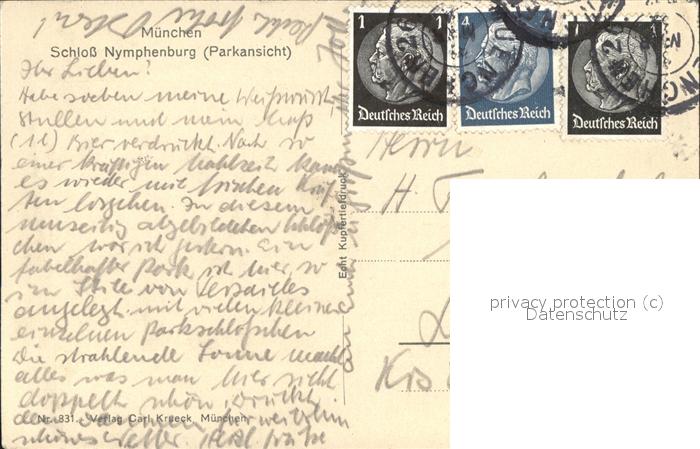 Recht frohe Ostern!
München
Schloß Nymphenburg (Parkansicht)
Ihr Lieben!
Habe soeben meine Weißwürst,
stullen und mein Maß
(1 l) Bier verdrückt. Nach so
einer kräftigen Mahlzeit kann
es wieder mit frischen Kräf-
ten losgehen. In diesem
umseitig abgebildeten Schlöß-
chen war ich gestern. Ein
fabelhafter Park ist hier, so
im Stile von Versailles
angelegt mit vielen kleinen
einzelnen Parkschlößchen
Die strahlende Sonne macht
alles was man hier sieht
doppelt schön. Drückt
den Daumen für weiterhin
schönes Wetter. Herzl. Grüße
Nr. 831. Verlag Carl Krueck, München.
Echt Kupfertiefdruck
1 1
Deutsches Reich
4
Deutsches Reich
1
Deutsches Reich
Herrn
H.
privacy protection (c)
Datenschutz